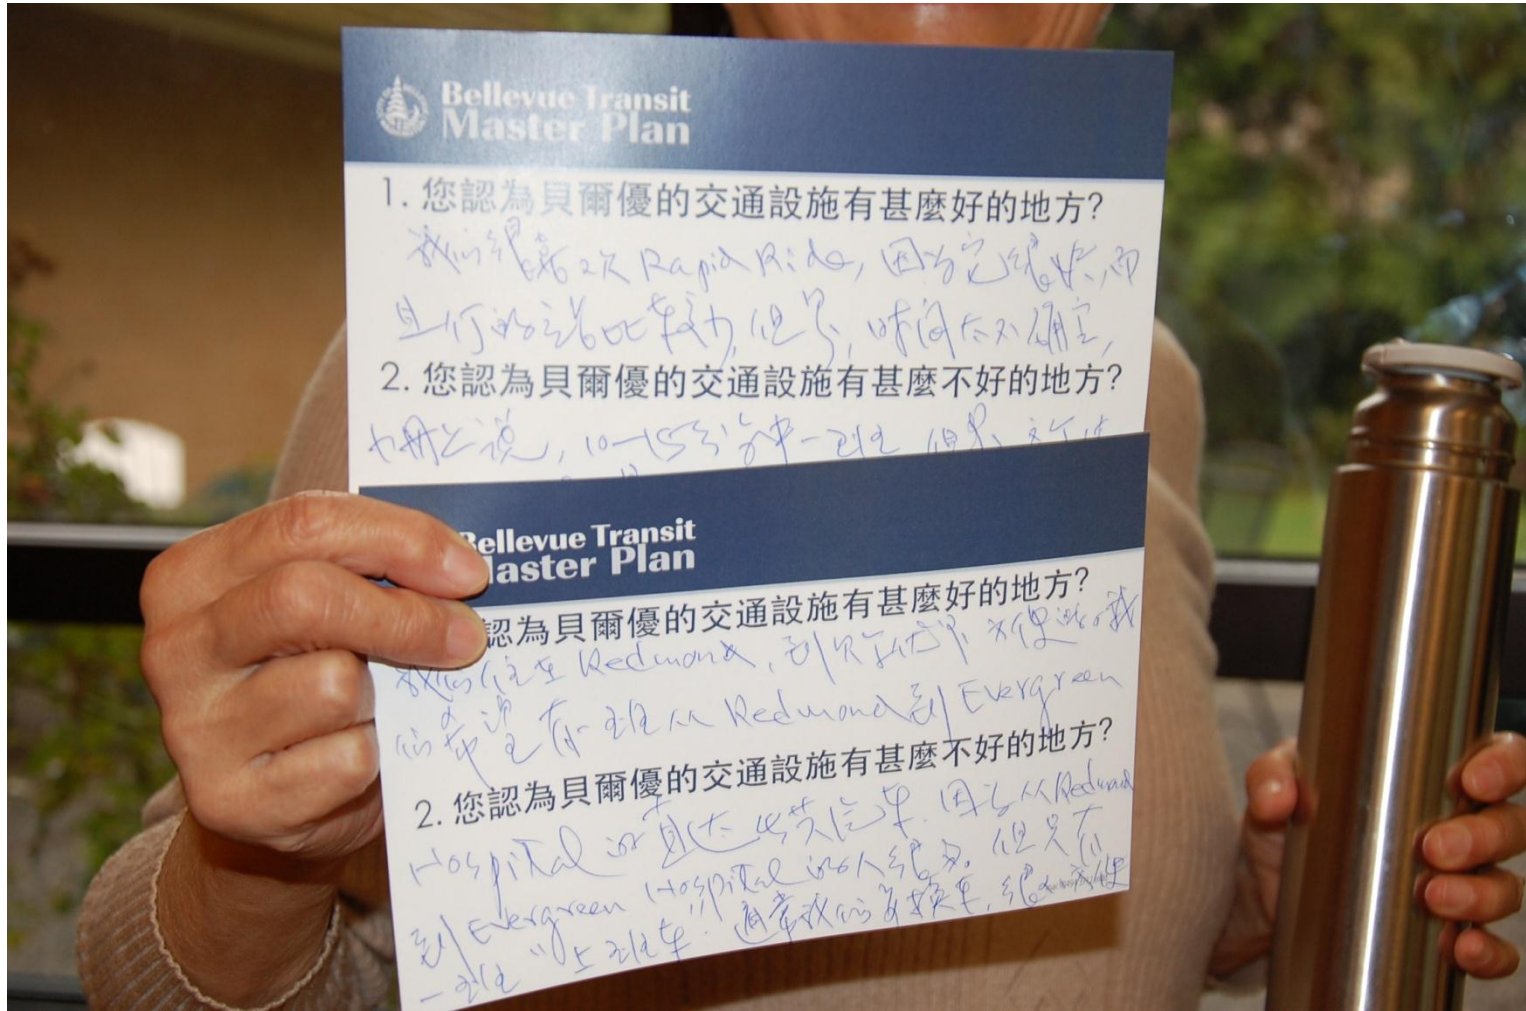 Bellevue Transit
Master Plan
1. 您認為貝爾優的交通設施有甚麼好的地方?
我们很喜欢 Rapid Ride, 因为它很快, 而
且行的站比较少, 但是, 时间太不确定,
2. 您認為貝爾優的交通設施有甚麼不好的地方?
小册上说, 10-15分钟一班 但是
Bellevue Transit
Master Plan
認為貝爾優的交通設施有甚麼好的地方?
我们住在 Redmond, 到 方便 我
们希望有班从 Redmond 到 Evergreen
2. 您認為貝爾優的交通設施有甚麼不好的地方?
Hospital 的直达公共汽车. 因为从 Redmond
到 Evergreen Hospital 的人很多。但只有
一班 "上班车" 通常我们要换车, 很不方便